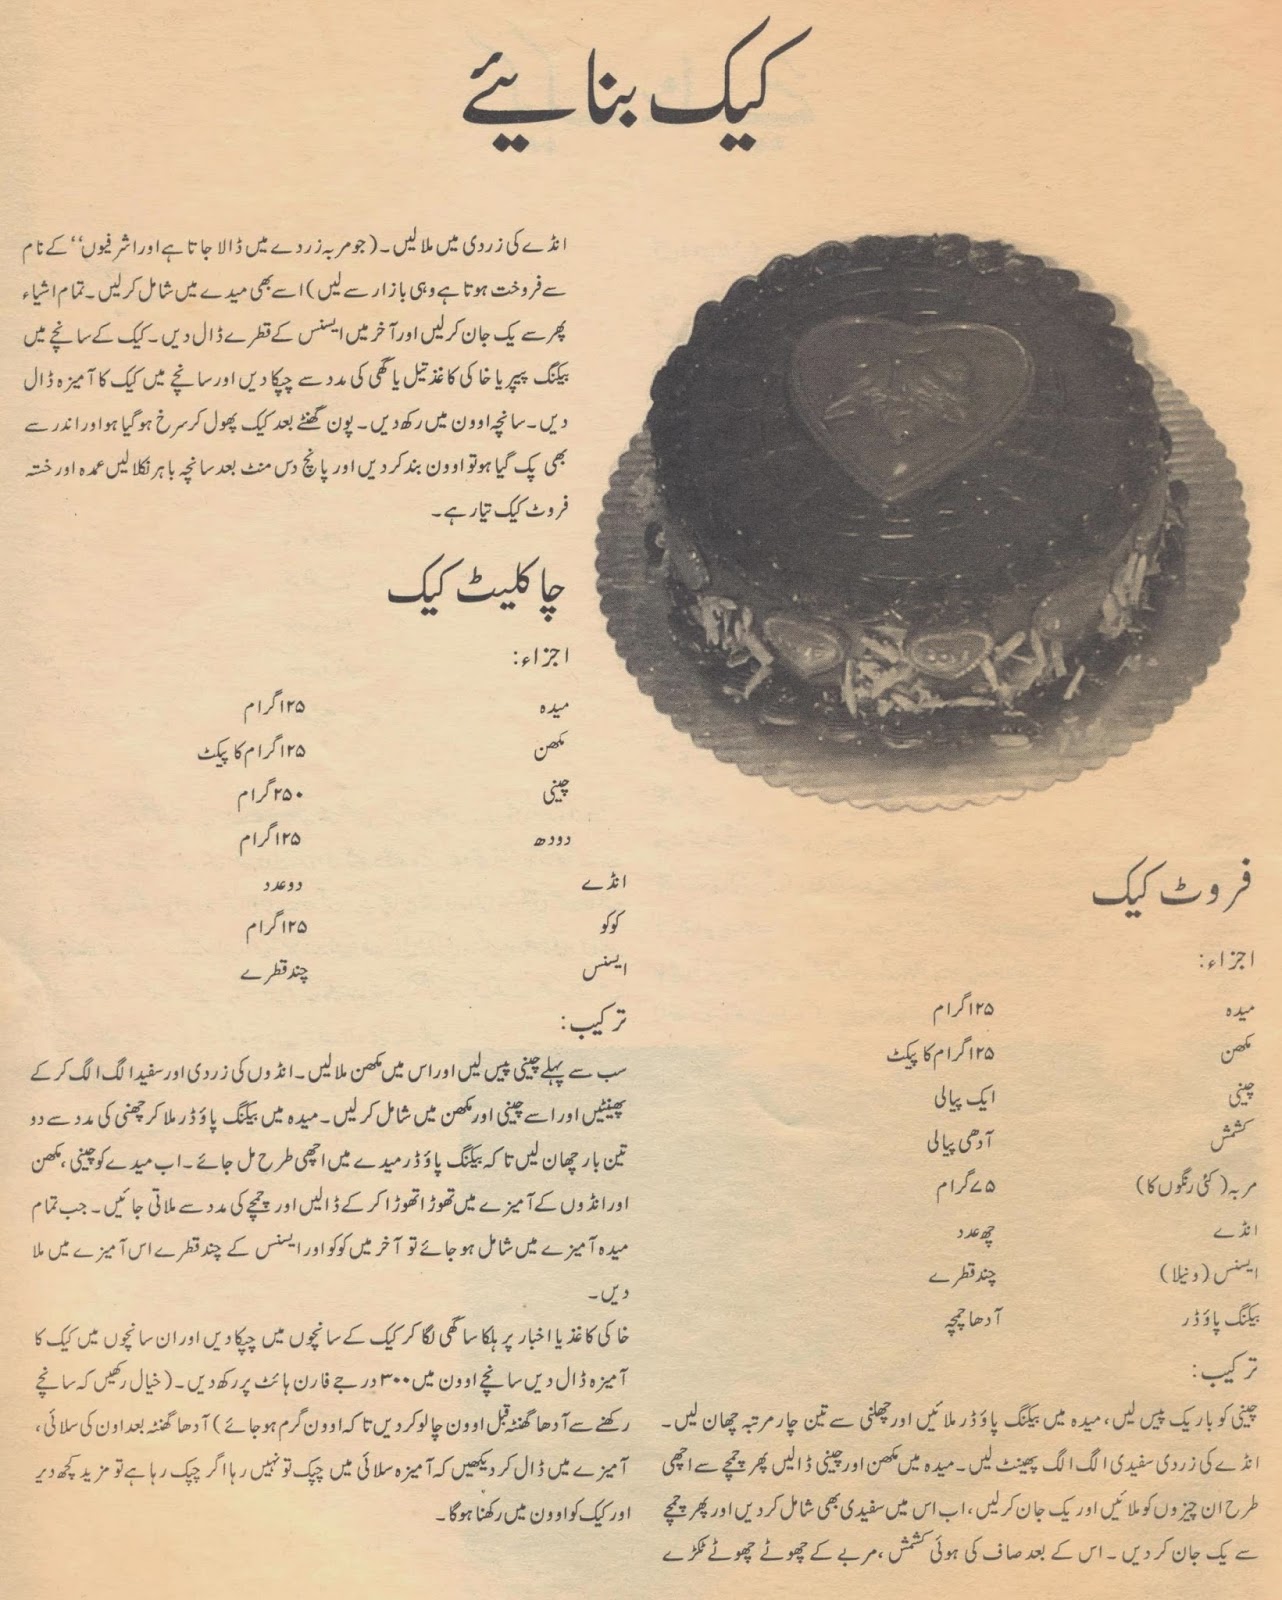 کیک بنائیے
فروٹ کیک
اجزاء:
میدہ ۱۲۵گرام
مکھن ۱۲۵گرام کا پیکٹ
چینی ایک پیالی
کشمش آدھی پیالی
مربہ (کئی رنگوں کا) ۷۵گرام
انڈے چھ عدد
ایسنس (ونیلا) چند قطرے
بیکنگ پاؤڈر آدھا چمچہ
ترکیب:
چینی کو باریک پیس لیں، میدہ میں بیکنگ پاؤڈر ملائیں اور چھلنی سے تین چار مرتبہ چھان لیں۔
انڈے کی زردی سفیدی الگ الگ پھینٹ لیں۔ میدہ میں مکھن اور چینی ڈالیں پھر چمچے سے اچھی
طرح ان چیزوں کو ملائیں اور یک جان کرلیں، اب اس میں سفیدی بھی شامل کردیں اور پھر چمچے
سے یک جان کردیں۔ اس کے بعد صاف کی ہوئی کشمش، مربے کے چھوٹے چھوٹے ٹکڑے
انڈے کی زردی میں ملالیں۔ (جو مربہ زردے میں ڈالا جاتا ہے اور اشرفیوں‘‘ کے نام
سے فروخت ہوتا ہے وہی بازار سے لیں) اسے بھی میدے میں شامل کرلیں۔ تمام اشیاء
پھر سے یک جان کرلیں اور آخر میں ایسنس کے قطرے ڈال دیں۔ کیک کے سانچے میں
بیکنگ پیپر یا خاکی کاغذ تیل یا گھی کی مدد سے چپکا دیں اور سانچے میں کیک کا آمیزہ ڈال
دیں۔ سانچہ اوون میں رکھ دیں۔ پون گھنٹے بعد کیک پھول کر سرخ ہوگیا ہو اور اندر سے
بھی پک گیا ہو تو اوون بند کردیں اور پانچ دس منٹ بعد سانچہ باہر نکالیں عمدہ اور خستہ
فروٹ کیک تیار ہے۔
چاکلیٹ کیک
اجزاء:
میدہ ۱۲۵گرام
مکھن ۱۲۵گرام کا پیکٹ
چینی ۲۵۰گرام
دودھ ۱۲۵گرام
انڈے دو عدد
کوکو ۱۲۵گرام
ایسنس چند قطرے
ترکیب:
سب سے پہلے چینی پیس لیں اور اس میں مکھن ملالیں۔ انڈوں کی زردی اور سفید الگ الگ کرکے
پھینٹیں اور اسے چینی اور مکھن میں شامل کرلیں۔ میدہ میں بیکنگ پاؤڈر ملا کر چھنی کی مدد سے دو
تین بار چھان لیں تاکہ بیکنگ پاؤڈر میدے میں اچھی طرح مل جائے۔ اب میدے کو چینی، مکھن
اور انڈوں کے آمیزے میں تھوڑا تھوڑا کرکے ڈالیں اور چمچے کی مدد سے ملاتی جائیں۔ جب تمام
میدہ آمیزے میں شامل ہوجائے تو آخر میں کوکو اور ایسنس کے چند قطرے اس آمیزے میں ملا
دیں۔
خاکی کاغذ یا اخبار پر ہلکا سا گھی لگا کر کیک کے سانچوں میں چپکا دیں اور ان سانچوں میں کیک کا
آمیزہ ڈال دیں سانچے اوون میں ۳۰۰ درجے فارن ہائٹ پر رکھ دیں۔ (خیال رکھیں کہ سانچے
رکھنے سے آدھا گھنٹہ قبل اوون چالو کردیں تاکہ اوون گرم ہوجائے) آدھا گھنٹہ بعد اون کی سلائی،
آمیزے میں ڈال کر دیکھیں کہ آمیزہ سلائی میں چپک تو نہیں رہا اگر چپک رہا ہے تو مزید کچھ دیر
اور کیک کو اوون میں رکھنا ہوگا۔